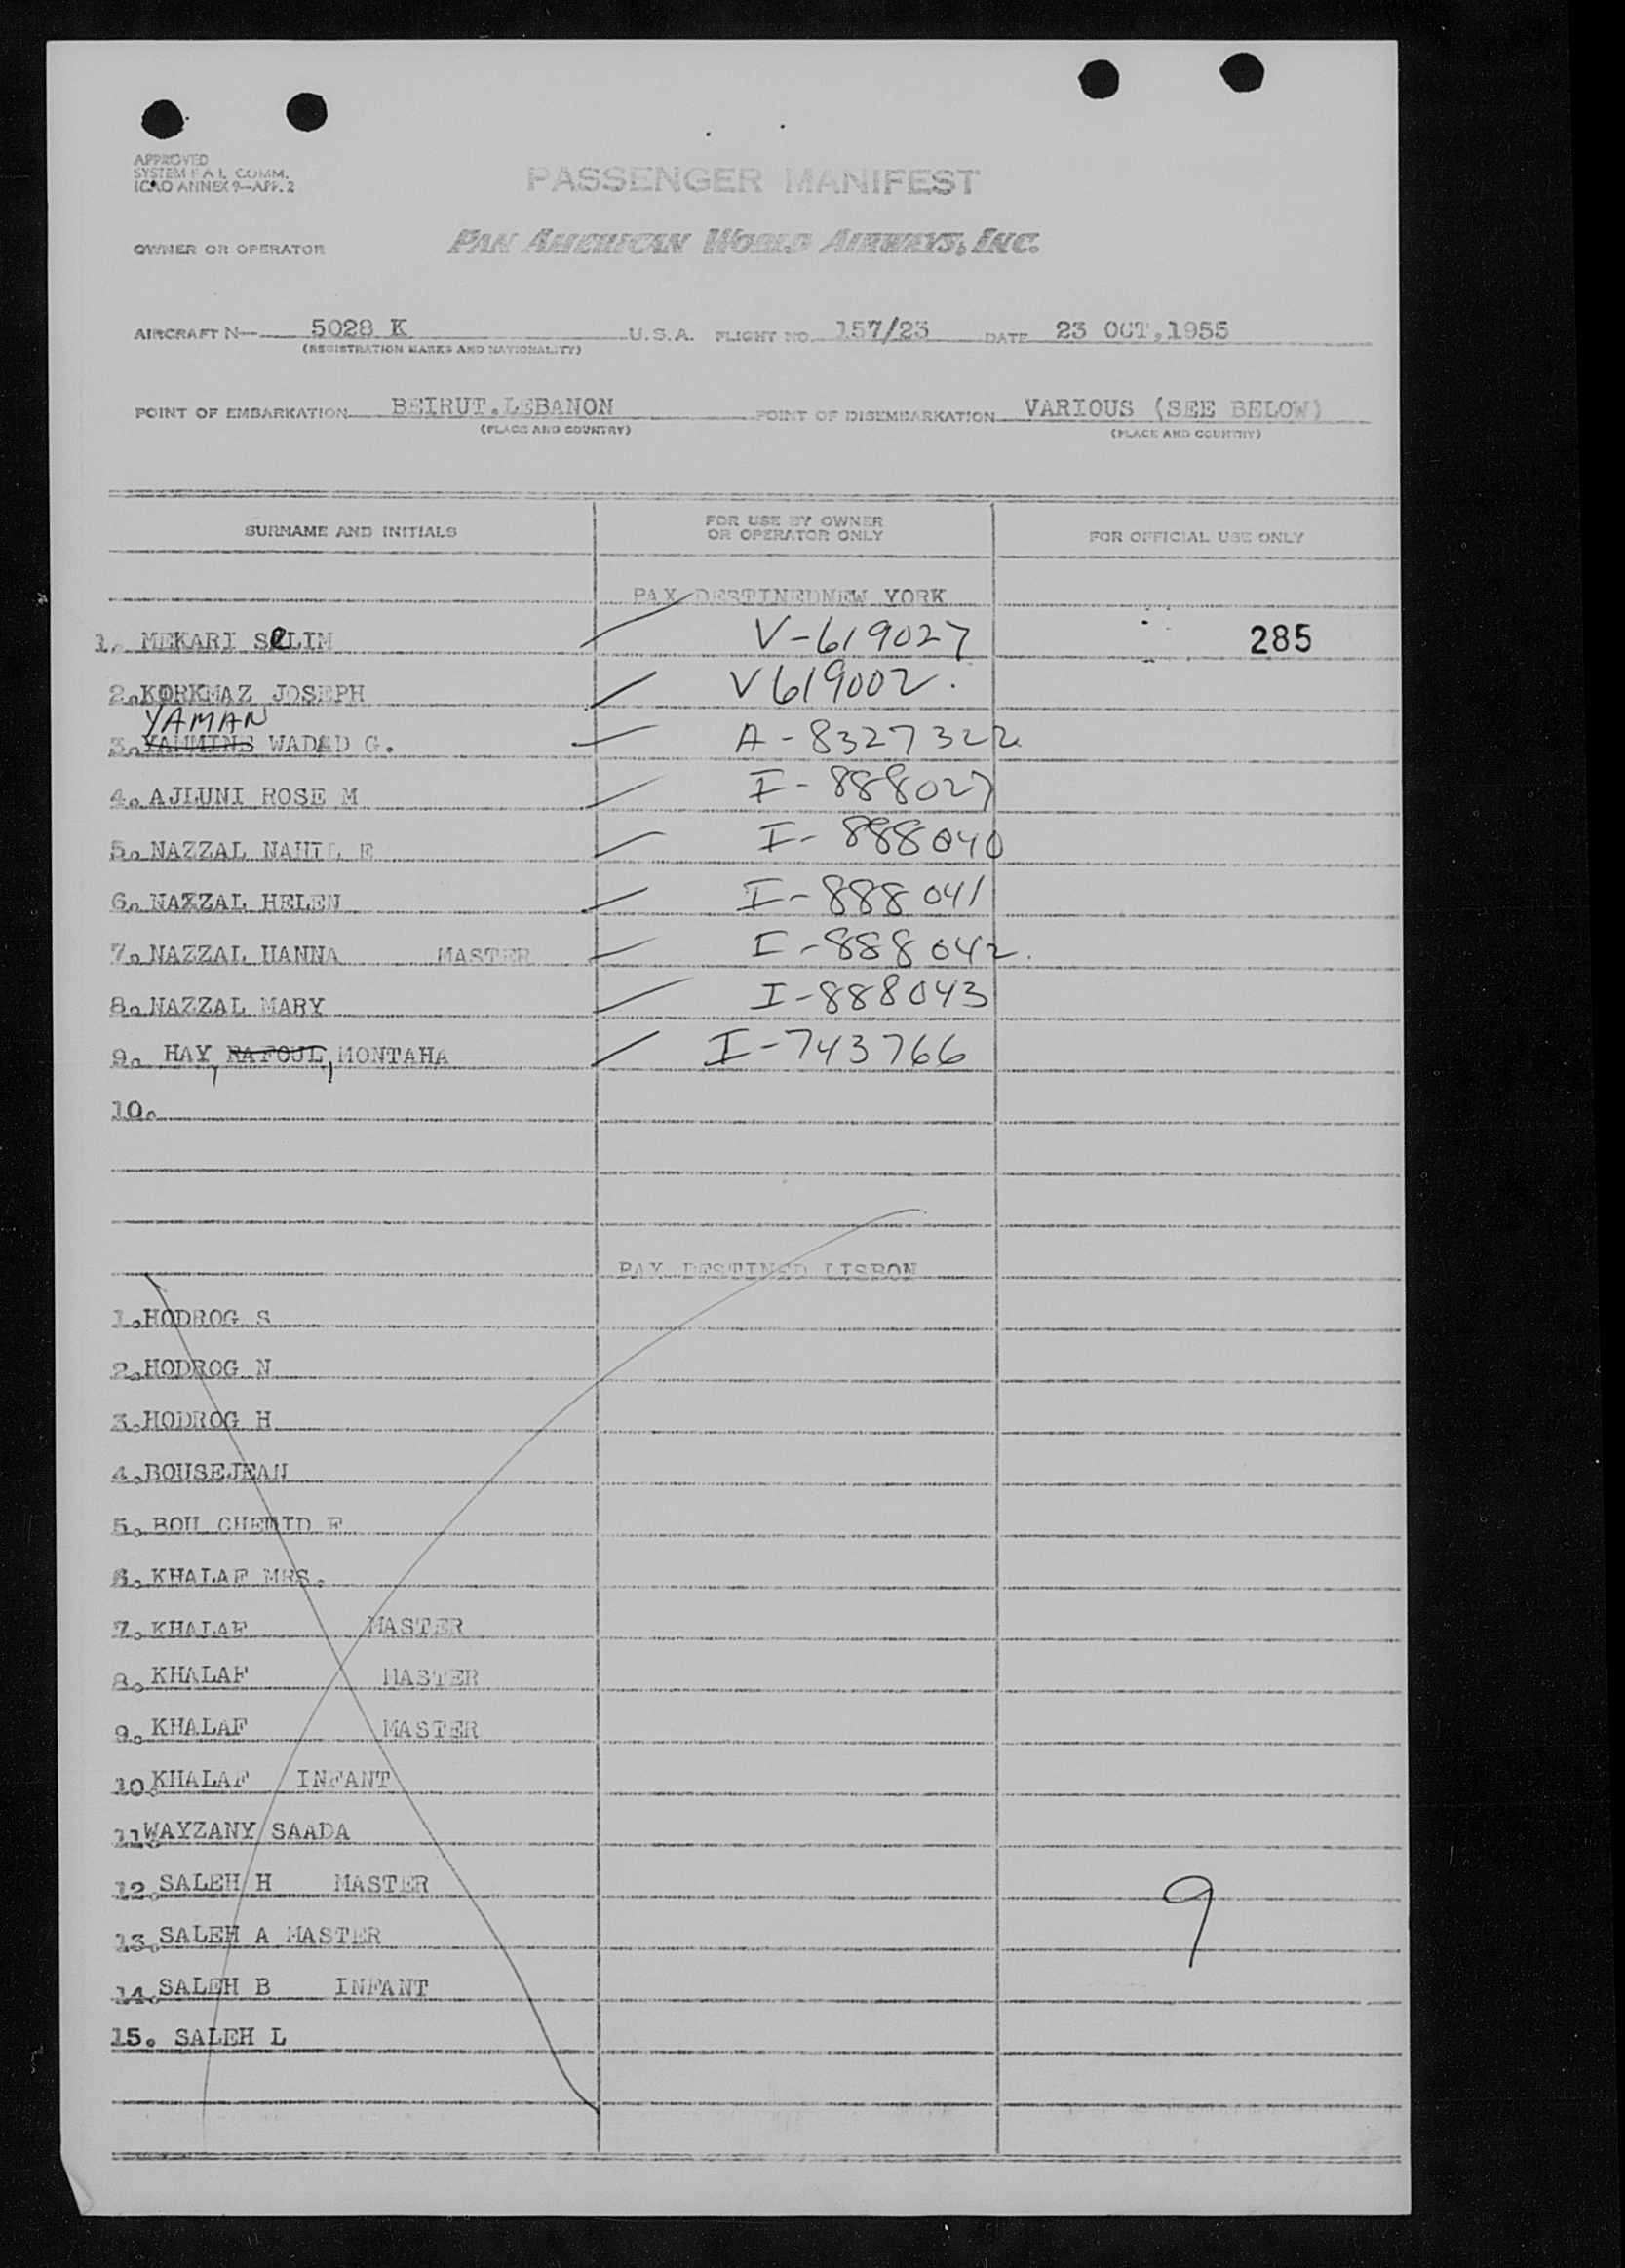 APPROVED
SYSTEM F A L COMM.
ICAO ANNEX 9—APP. 2
PASSENGER MANIFEST
OWNER OR OPERATOR PAN AMERICAN WORLD AIRWAYS, INC.
AIRCRAFT N— 5028 K U.S.A. FLIGHT NO. 157/23 DATE 23 OCT,1955
(REGISTRATION MARKS AND NATIONALITY)
POINT OF EMBARKATION BEIRUT.LEBANON POINT OF DISEMBARKATION VARIOUS (SEE BELOW)
(PLACE AND COUNTRY) (PLACE AND COUNTRY)
SURNAME AND INITIALS FOR USE BY OWNER OR OPERATOR ONLY FOR OFFICIAL USE ONLY
PAX DESTINEDNEW YORK
1. MEKARI SELIM V-619027 285
2.KORKMAZ JOSEPH V619002.
YAMAN
3. WADAD G. A-8327322
4. AJLUNI ROSE M I-888027
5. NAZZAL NAHIL E I-888040
6. NAZZAL HELEN I-888041
7. NAZZAL HANNA MASTER I-888042.
8. NAZZAL MARY I-888043
9. HAY, RAFOUL, MONTAHA I-743766
10.
PAX DESTINED LISBON
1.HODROG S
2.HODROG N
3.HODROG H
4.BOUSEJEAN
5. BOU CHEMID F
6. KHALAF MRS.
7. KHALAF MASTER
8. KHALAF MASTER
9. KHALAF MASTER
10.KHALAF INFANT
11.WAYZANY SAADA
12.SALEH H MASTER
9
13.SALEH A MASTER
14.SALEH B INFANT
15. SALEH L